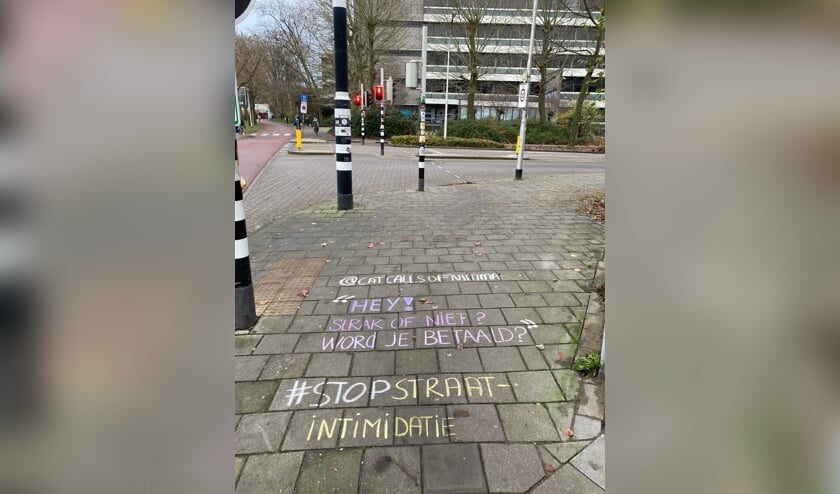 @CATCALLSOFNIJMMA
"HEY!
STRAK OF NIET?
WORD JE BETAALD?"
#STOPSTRAAT-
INTIMIDATIE